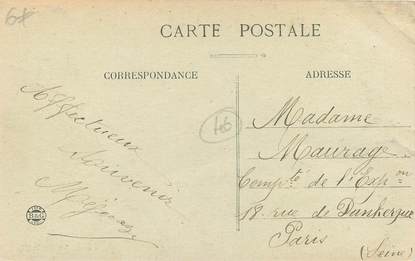 6f
CARTE POSTALE
CORRESPONDANCE
ADRESSE
Affectueux
Souvenir
46
Madame
Maurage
Compté de l'Expon
18. rue de Dunkerque
Paris
(Seine)
B&G